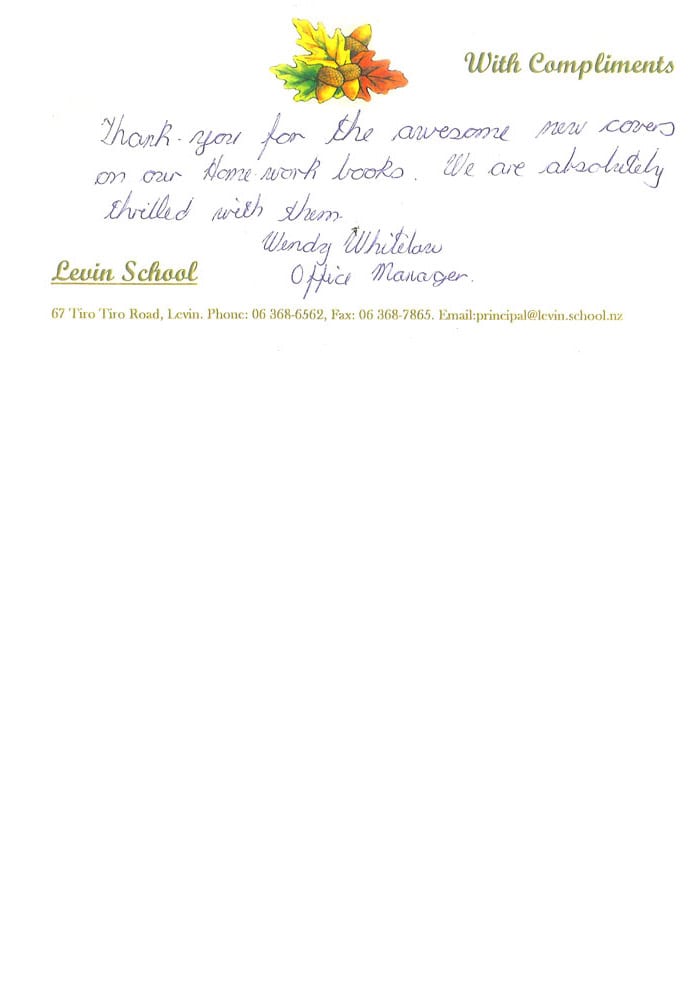 With Compliments
Thank-you for the awesome new covers
on our Home-work books. We are absolutely
thrilled with them.
Wendy Whitelaw
Levin School
Office Manager.
67 Tiro Tiro Road, Levin. Phone: 06 368-6562, Fax: 06 368-7865. Email:principal@levin.school.nz